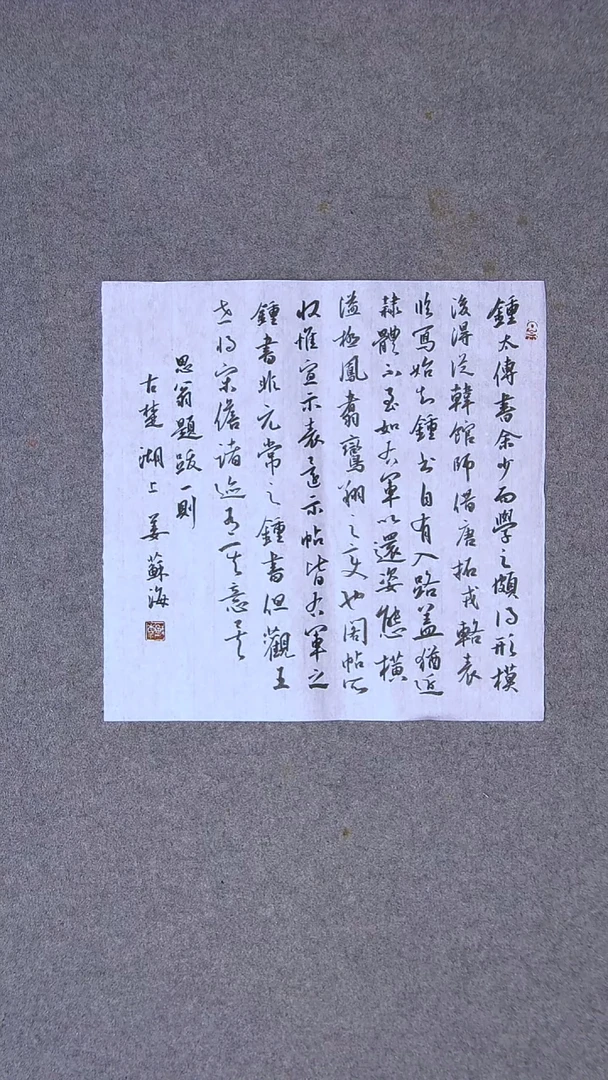 鍾太傅書余少而學之頗得形模
後得從韓館師借唐拓戎輅表
臨寫始知鍾書自有入路蓋猶近
隸體不至如右軍以還姿態橫
溢極鳳翥鸞翔之變也閣帖所
收惟宣示表還示帖皆右軍之
鍾書非元常之鍾書但觀王
世將宋儋諸迹有其意矣
思翁題跋一則
古楚湖上姜蘇海